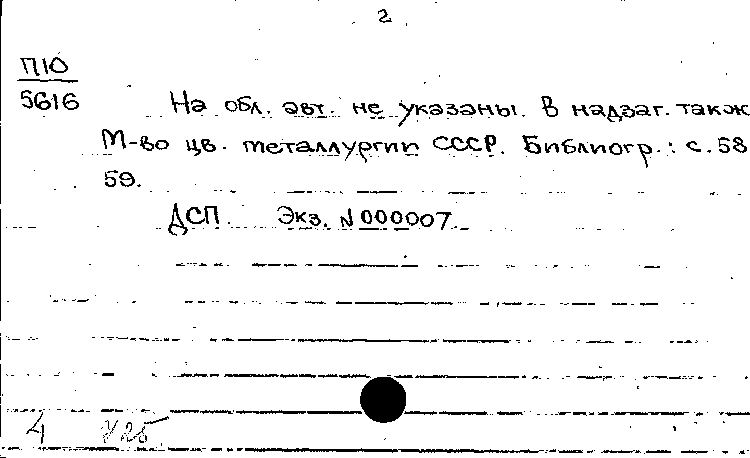 2
П10
5616
На обл. авт. не указаны. В надзаг. также
М-во цв. металлургии СССР. Библиогр.: с. 58
59.
ДСП. Экз. N 000007
4